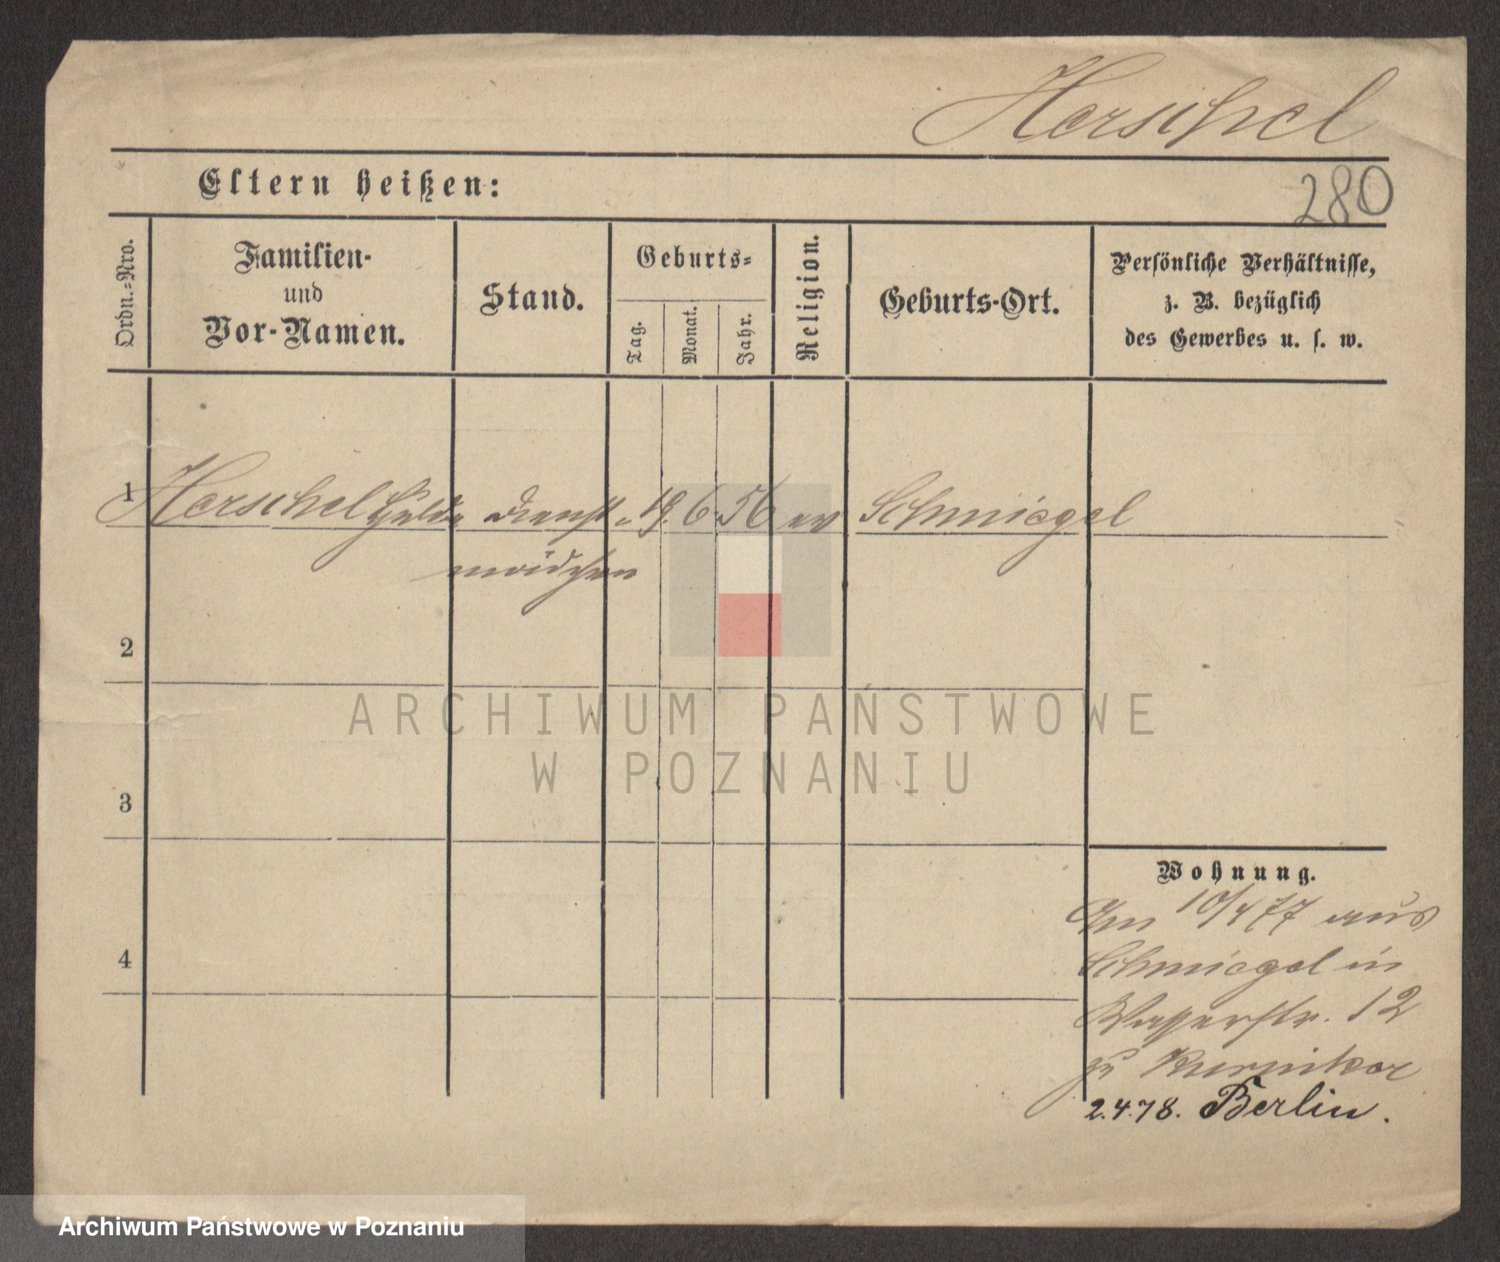 Herschel
Eltern heißen:
280
Ordn.-Nro.
Familien-
und
Vor-Namen.
Stand.
Geburts-
Tag.
Monat.
Jahr.
Religion.
Geburts-Ort.
Persönliche Verhältnisse,
z. B. bezüglich
des Gewerbes u. s. w.
1 Herschel Hulda Dienst- 19. 6. 56 ev Schmiegel
mädchen
2
ARCHIWUM PAŃSTWOWE
W POZNANIU
3
Wohnung.
Am 10/4 77 aus
4
Schmiegel in
Wasserstr. 12
zu
2.4.78. Berlin.
Archiwum Państwowe w Poznaniu